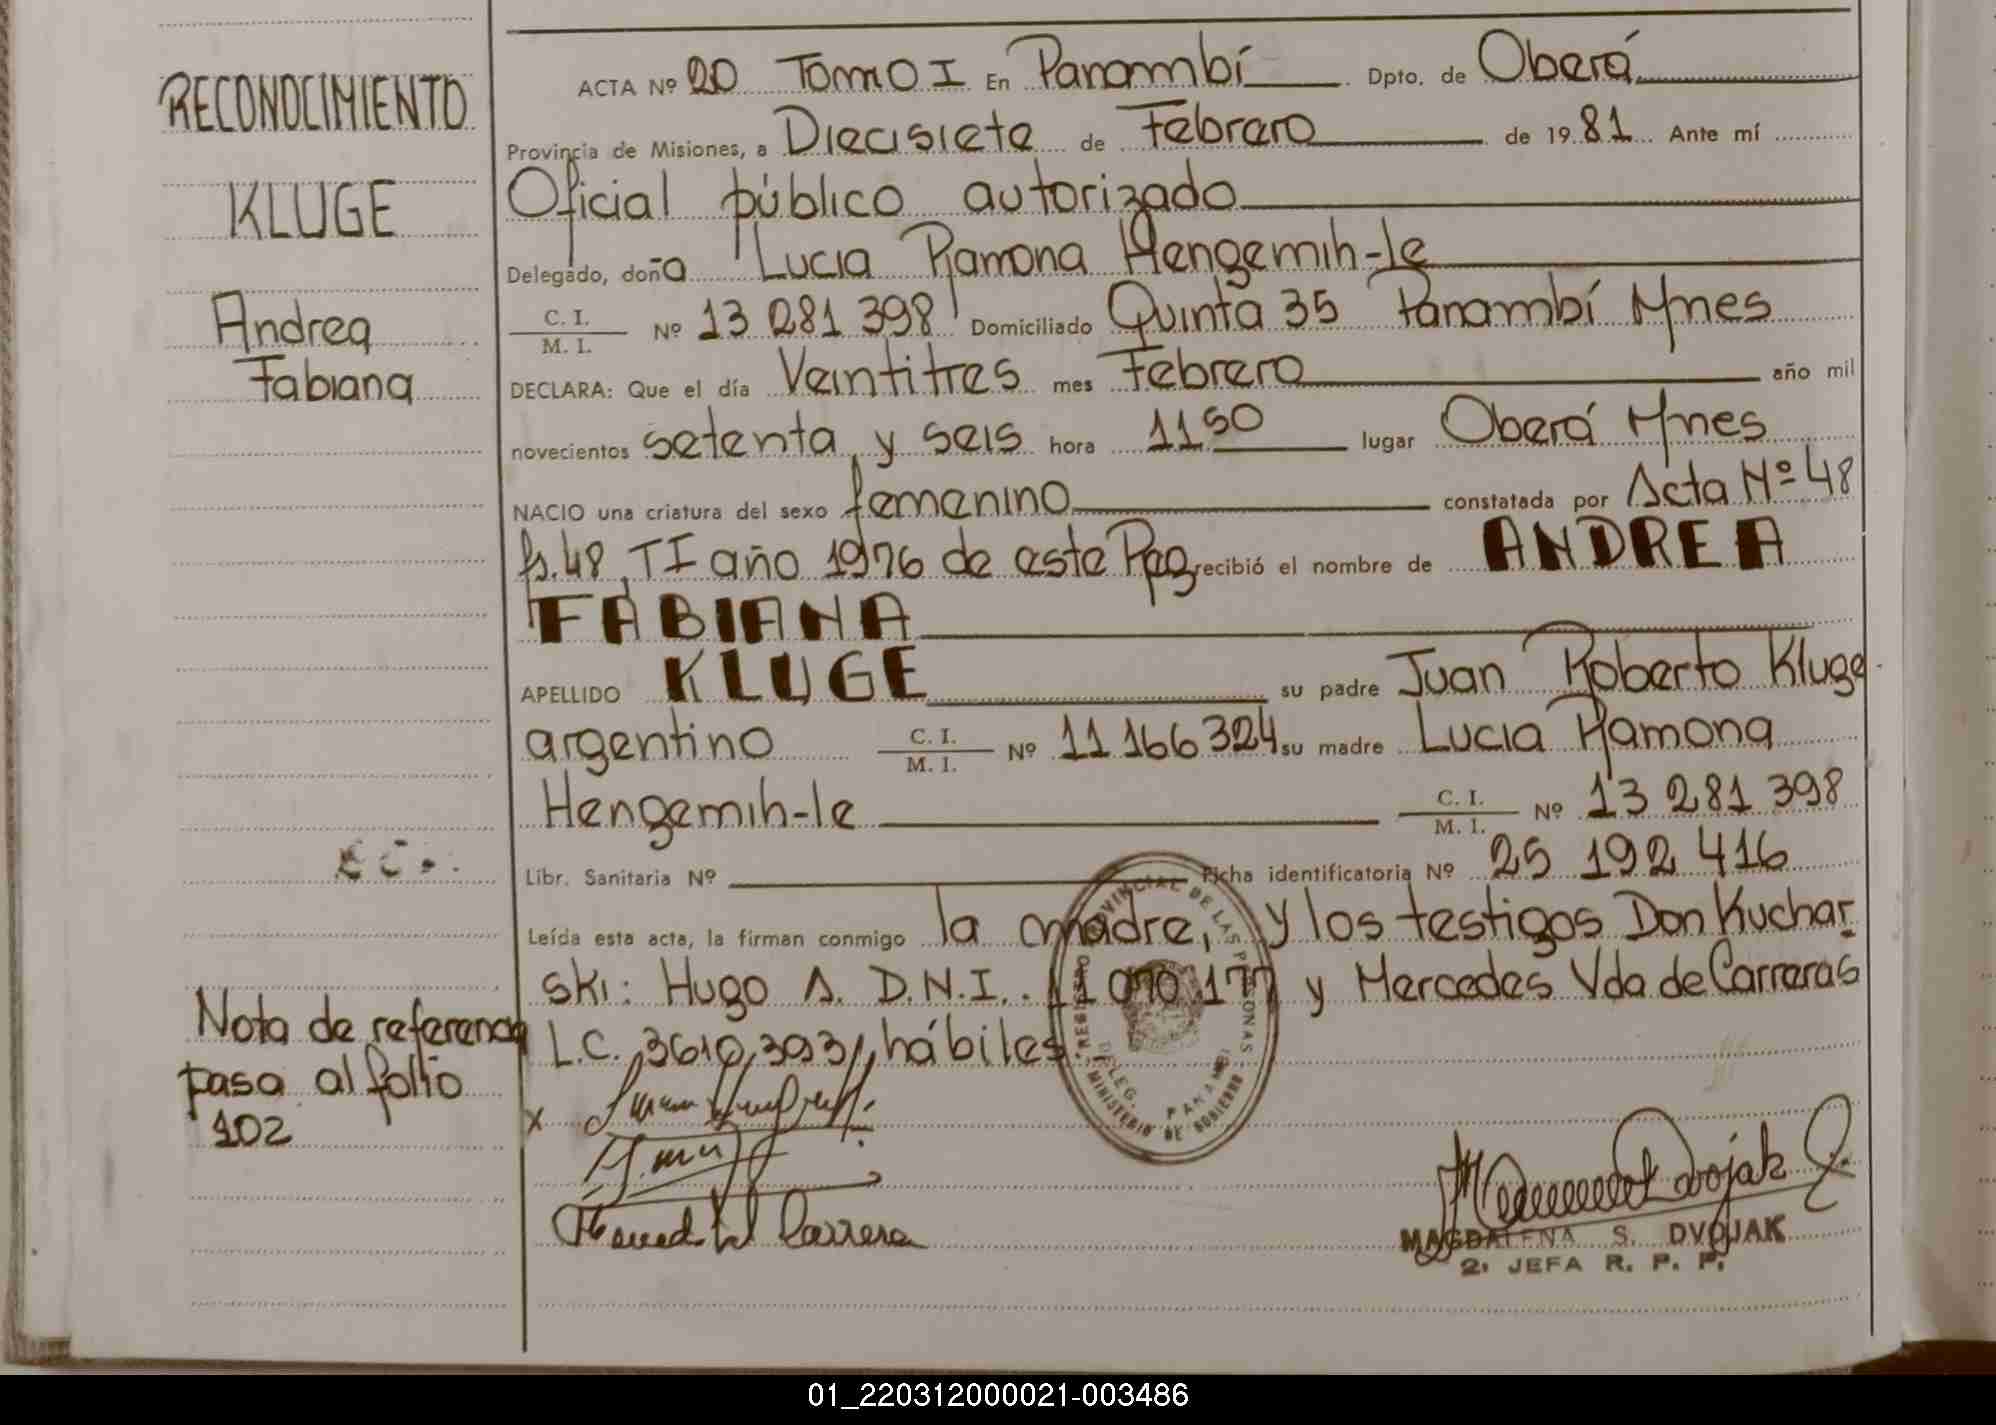 RECONOCIMIENTO
KLUGE
Andrea
Fabiana
Nota de referencia
pasa al folio
102
ACTA Nº 20 Tomo I En Panambí Dpto. de Oberá
Provincia de Misiones, a Diecisiete de Febrero de 1981 Ante mí
Oficial público autorizado
Delegado, doña Lucia Ramona Hengemih-le
C. I. / M. I. Nº 13 281 398 Domiciliado Quinta 35 Panambí Mnes
DECLARA: Que el día Veintitres mes Febrero año mil
novecientos setenta y seis hora 11 50 lugar Oberá Mnes
NACIO una criatura del sexo femenino constatada por Acta Nº 48
fs. 48 TI año 1976 de este Reg recibió el nombre de ANDREA
FABIANA
APELLIDO KLUGE su padre Juan Roberto Kluge
argentino C. I. / M. I. Nº 11 166 324 su madre Lucia Ramona
Hengemih-le C. I. / M. I. Nº 13 281 398
Libr. Sanitaria Nº Ficha identificatoria Nº 25 192 416
Leída esta acta, la firman conmigo la madre, y los testigos Don Kuchar
ski: Hugo A. D.N.I. 11 070 177 y Mercedes Vda de Carreras
L.C. 3610,393, hábiles
REGISTRO PROVINCIAL DE LAS PERSONAS
DELEG. PANAMBI
MINISTERIO DE GOBIERNO
x
MAGDALENA S. DVOJAK
2. JEFA R. P. P.
01_220312000021-003486